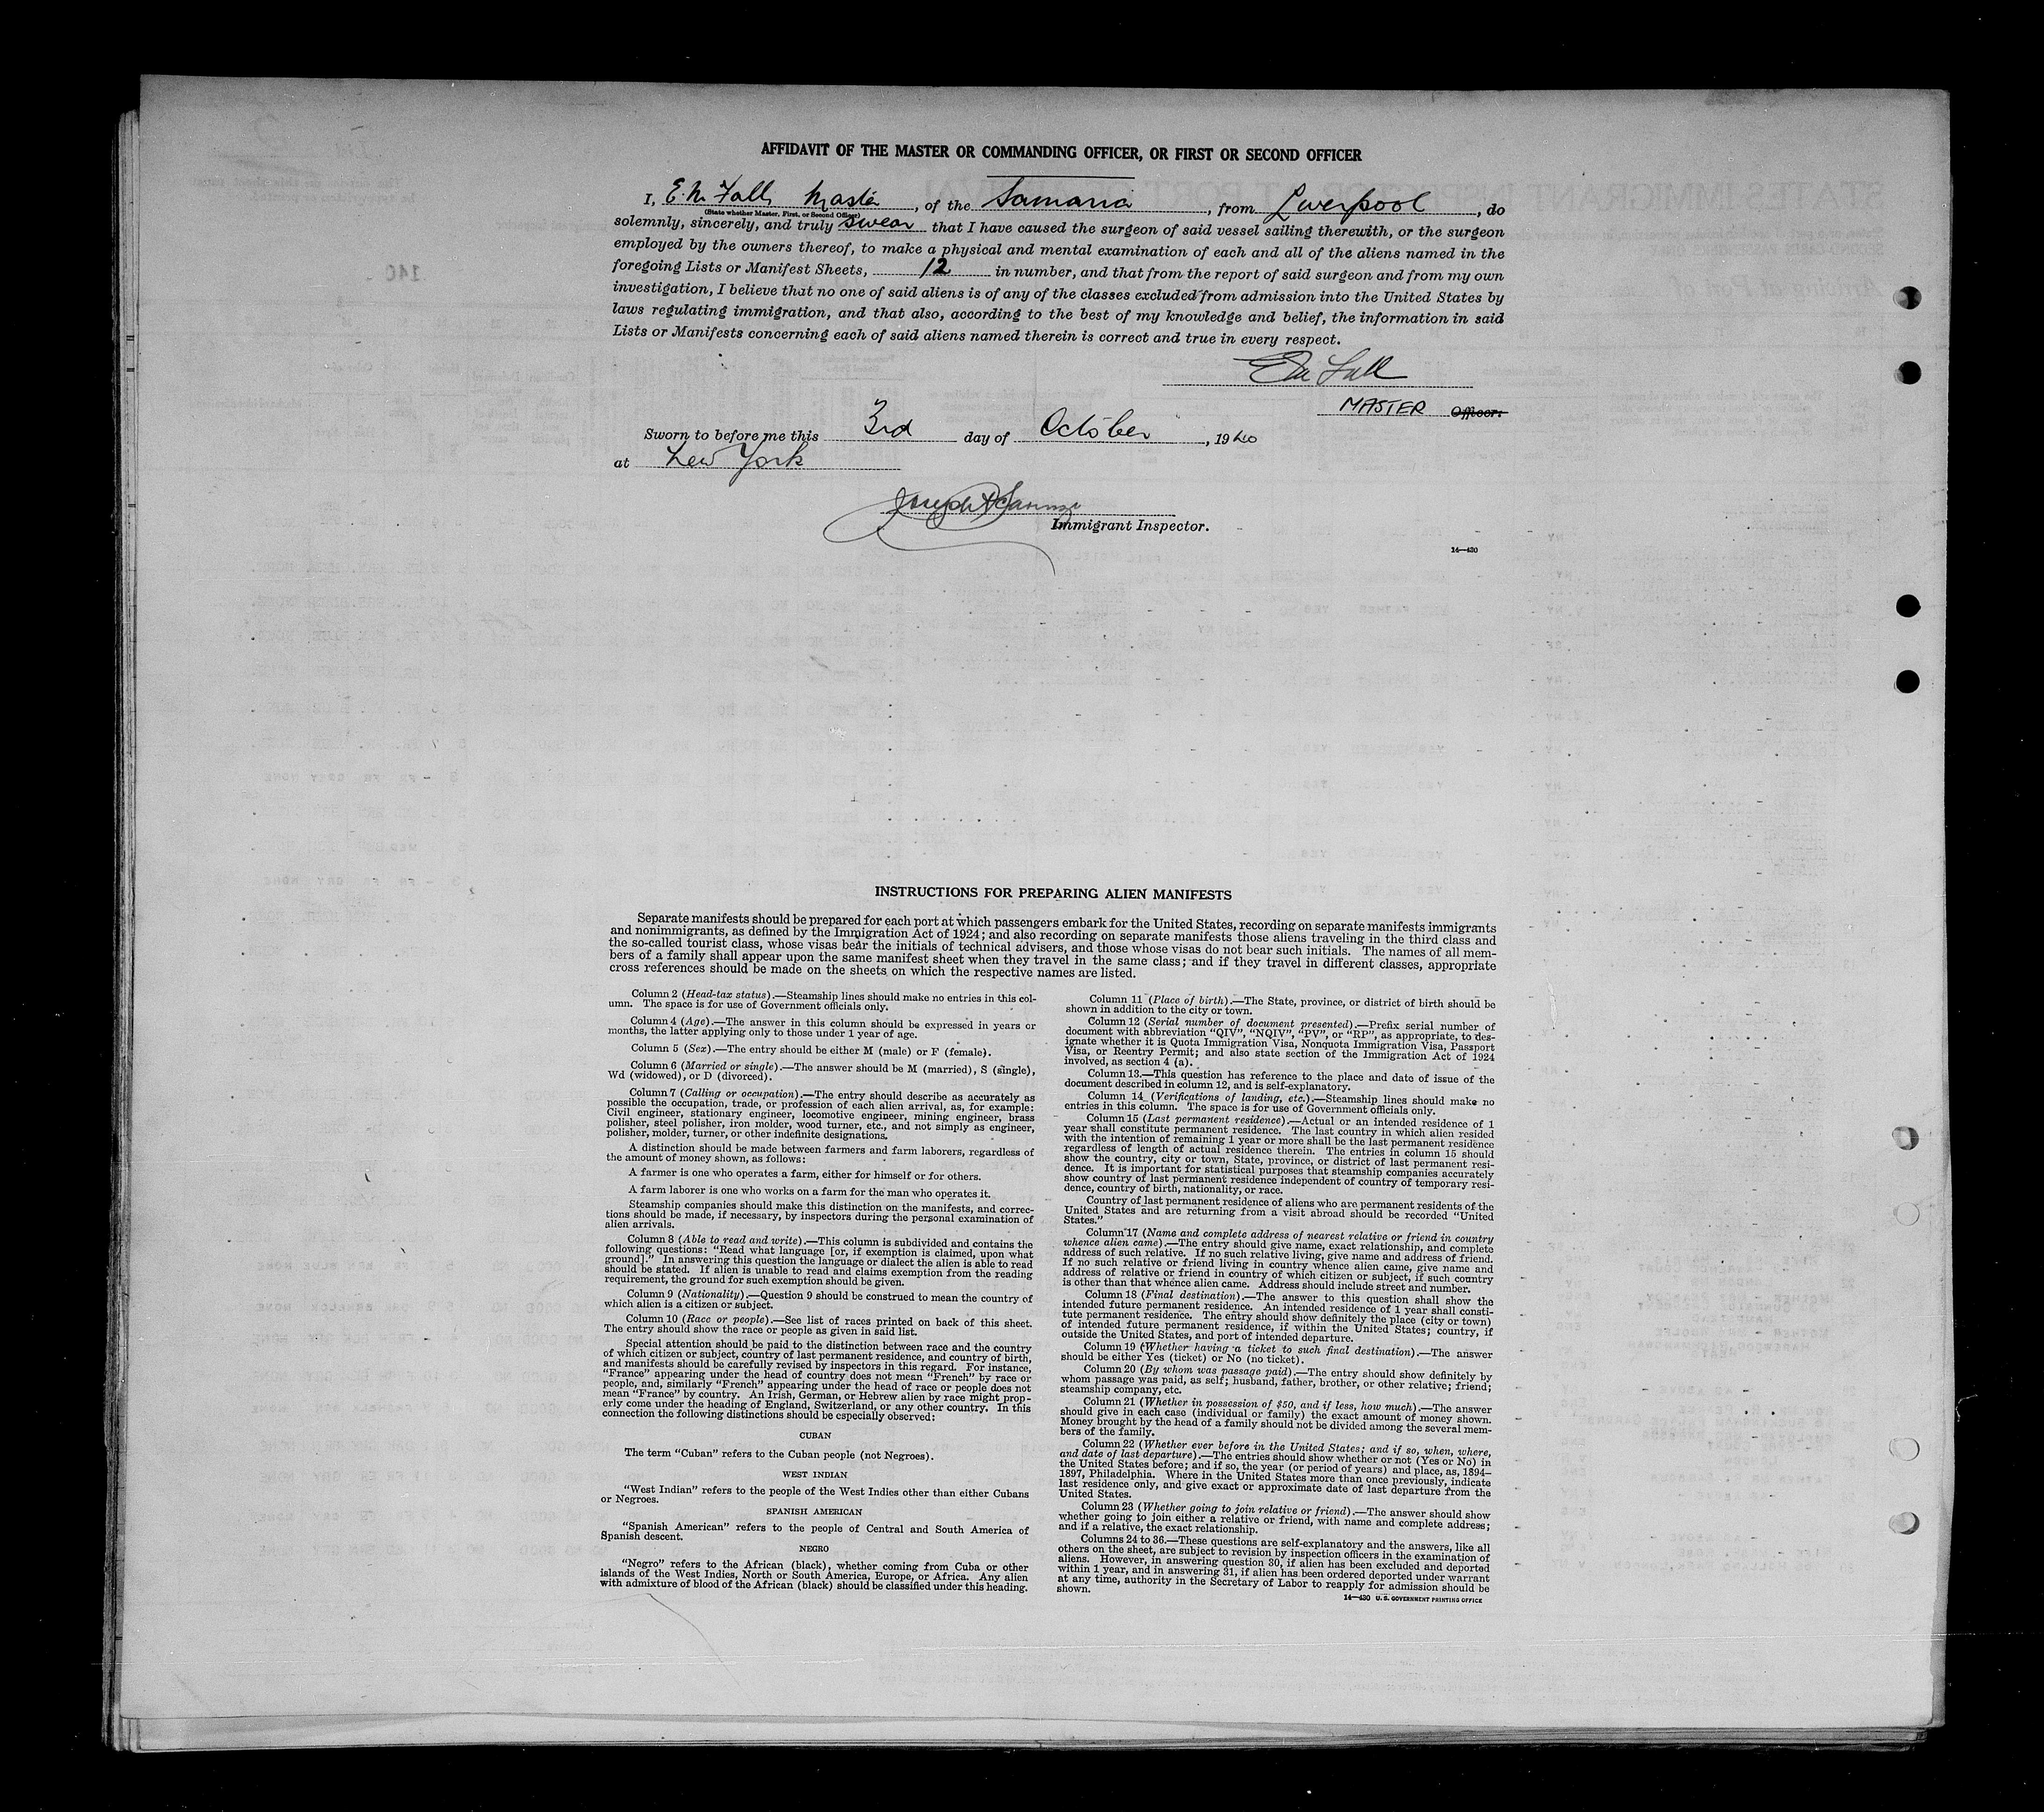 AFFIDAVIT OF THE MASTER OR COMMANDING OFFICER, OR FIRST OR SECOND OFFICER
I, E. M. Fall, Master, of the Samaria, from Liverpool, do
(State whether Master, First, or Second Officer)
solemnly, sincerely, and truly swear that I have caused the surgeon of said vessel sailing therewith, or the surgeon
employed by the owners thereof, to make a physical and mental examination of each and all of the aliens named in the
foregoing Lists or Manifest Sheets, 12 in number, and that from the report of said surgeon and from my own
investigation, I believe that no one of said aliens is of any of the classes excluded from admission into the United States by
laws regulating immigration, and that also, according to the best of my knowledge and belief, the information in said
Lists or Manifests concerning each of said aliens named therein is correct and true in every respect.
EM Fall
MASTER Officer.
Sworn to before me this 3rd day of October, 1940
at New York
Immigrant Inspector.
14—430
INSTRUCTIONS FOR PREPARING ALIEN MANIFESTS
Separate manifests should be prepared for each port at which passengers embark for the United States, recording on separate manifests immigrants
and nonimmigrants, as defined by the Immigration Act of 1924; and also recording on separate manifests those aliens traveling in the third class and
the so-called tourist class, whose visas bear the initials of technical advisers, and those whose visas do not bear such initials. The names of all mem-
bers of a family shall appear upon the same manifest sheet when they travel in the same class; and if they travel in different classes, appropriate
cross references should be made on the sheets on which the respective names are listed.
Column 2 (Head-tax status).—Steamship lines should make no entries in this col-
umn. The space is for use of Government officials only.
Column 4 (Age).—The answer in this column should be expressed in years or
months, the latter applying only to those under 1 year of age.
Column 5 (Sex).—The entry should be either M (male) or F (female).
Column 6 (Married or single).—The answer should be M (married), S (single),
Wd (widowed), or D (divorced).
Column 7 (Calling or occupation).—The entry should describe as accurately as
possible the occupation, trade, or profession of each alien arrival, as, for example:
Civil engineer, stationary engineer, locomotive engineer, mining engineer, brass
polisher, steel polisher, iron molder, wood turner, etc., and not simply as engineer,
polisher, molder, turner, or other indefinite designations.
A distinction should be made between farmers and farm laborers, regardless of
the amount of money shown, as follows:
A farmer is one who operates a farm, either for himself or for others.
A farm laborer is one who works on a farm for the man who operates it.
Steamship companies should make this distinction on the manifests, and correc-
tions should be made, if necessary, by inspectors during the personal examination of
alien arrivals.
Column 8 (Able to read and write).—This column is subdivided and contains the
following questions: “Read what language [or, if exemption is claimed, upon what
ground].” In answering this question the language or dialect the alien is able to read
should be stated. If alien is unable to read and claims exemption from the reading
requirement, the ground for such exemption should be given.
Column 9 (Nationality).—Question 9 should be construed to mean the country of
which alien is a citizen or subject.
Column 10 (Race or people).—See list of races printed on back of this sheet.
The entry should show the race or people as given in said list.
Special attention should be paid to the distinction between race and the country
of which citizen or subject, country of last permanent residence, and country of birth,
and manifests should be carefully revised by inspectors in this regard. For instance,
“France” appearing under the head of country does not mean “French” by race or
people, and, similarly “French” appearing under the head of race or people does not
mean “France” by country. An Irish, German, or Hebrew alien by race might prop-
erly come under the heading of England, Switzerland, or any other country. In this
connection the following distinctions should be especially observed:
CUBAN
The term “Cuban” refers to the Cuban people (not Negroes).
WEST INDIAN
“West Indian” refers to the people of the West Indies other than either Cubans
or Negroes.
SPANISH AMERICAN
“Spanish American” refers to the people of Central and South America of
Spanish descent.
NEGRO
“Negro” refers to the African (black), whether coming from Cuba or other
islands of the West Indies, North or South America, Europe, or Africa. Any alien
with admixture of blood of the African (black) should be classified under this heading.
Column 11 (Place of birth).—The State, province, or district of birth should be
shown in addition to the city or town.
Column 12 (Serial number of document presented).—Prefix serial number of
document with abbreviation “QIV”, “NQIV”, “PV”, or “RP”, as appropriate, to des-
ignate whether it is Quota Immigration Visa, Nonquota Immigration Visa, Passport
Visa, or Reentry Permit; and also state section of the Immigration Act of 1924
involved, as section 4 (a).
Column 13.—This question has reference to the place and date of issue of the
document described in column 12, and is self-explanatory.
Column 14 (Verifications of landing, etc.).—Steamship lines should make no
entries in this column. The space is for use of Government officials only.
Column 15 (Last permanent residence).—Actual or an intended residence of 1
year shall constitute permanent residence. The last country in which alien resided
with the intention of remaining 1 year or more shall be the last permanent residence
regardless of length of actual residence therein. The entries in column 15 should
show the country, city or town, State, province, or district of last permanent resi-
dence. It is important for statistical purposes that steamship companies accurately
show country of last permanent residence independent of country of temporary resi-
dence, country of birth, nationality, or race.
Country of last permanent residence of aliens who are permanent residents of the
United States and are returning from a visit abroad should be recorded “United
States.”
Column 17 (Name and complete address of nearest relative or friend in country
whence alien came).—The entry should give name, exact relationship, and complete
address of such relative. If no such relative living, give name and address of friend.
If no such relative or friend living in country whence alien came, give name and
address of relative or friend in country of which citizen or subject, if such country
is other than that whence alien came. Address should include street and number.
Column 18 (Final destination).—The answer to this question shall show the
intended future permanent residence. An intended residence of 1 year shall consti-
tute permanent residence. The entry should show definitely the place (city or town)
of intended future permanent residence, if within the United States; country, if
outside the United States, and port of intended departure.
Column 19 (Whether having a ticket to such final destination).—The answer
should be either Yes (ticket) or No (no ticket).
Column 20 (By whom was passage paid).—The entry should show definitely by
whom passage was paid, as self; husband, father, brother, or other relative; friend;
steamship company, etc.
Column 21 (Whether in possession of $50, and if less, how much).—The answer
should give in each case (individual or family) the exact amount of money shown.
Money brought by the head of a family should not be divided among the several mem-
bers of the family.
Column 22 (Whether ever before in the United States; and if so, when, where,
and date of last departure).—The entries should show whether or not (Yes or No) in
the United States before; and if so, the year (or period of years) and place, as, 1894–
1897, Philadelphia. Where in the United States more than once previously, indicate
last residence only, and give exact or approximate date of last departure from the
United States.
Column 23 (Whether going to join relative or friend).—The answer should show
whether going to join either a relative or friend, with name and complete address;
and if a relative, the exact relationship.
Columns 24 to 36.—These questions are self-explanatory and the answers, like all
others on the sheet, are subject to revision by inspection officers in the examination of
aliens. However, in answering question 30, if alien has been excluded and deported
within 1 year, and in answering 31, if alien has been ordered deported under warrant
at any time, authority in the Secretary of Labor to reapply for admission should be
shown.
14—430 U. S. GOVERNMENT PRINTING OFFICE